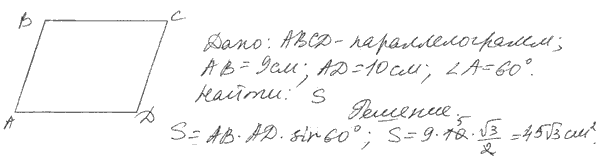 B C
A D
Дано: ABCD - параллелограмм;
AB = 9см; AD = 10см; ∠A = 60°.
Найти: S
Решение.
S = AB · AD · sin 60°; S = 9 · 10 5 · √3/2 = 45√3 см².